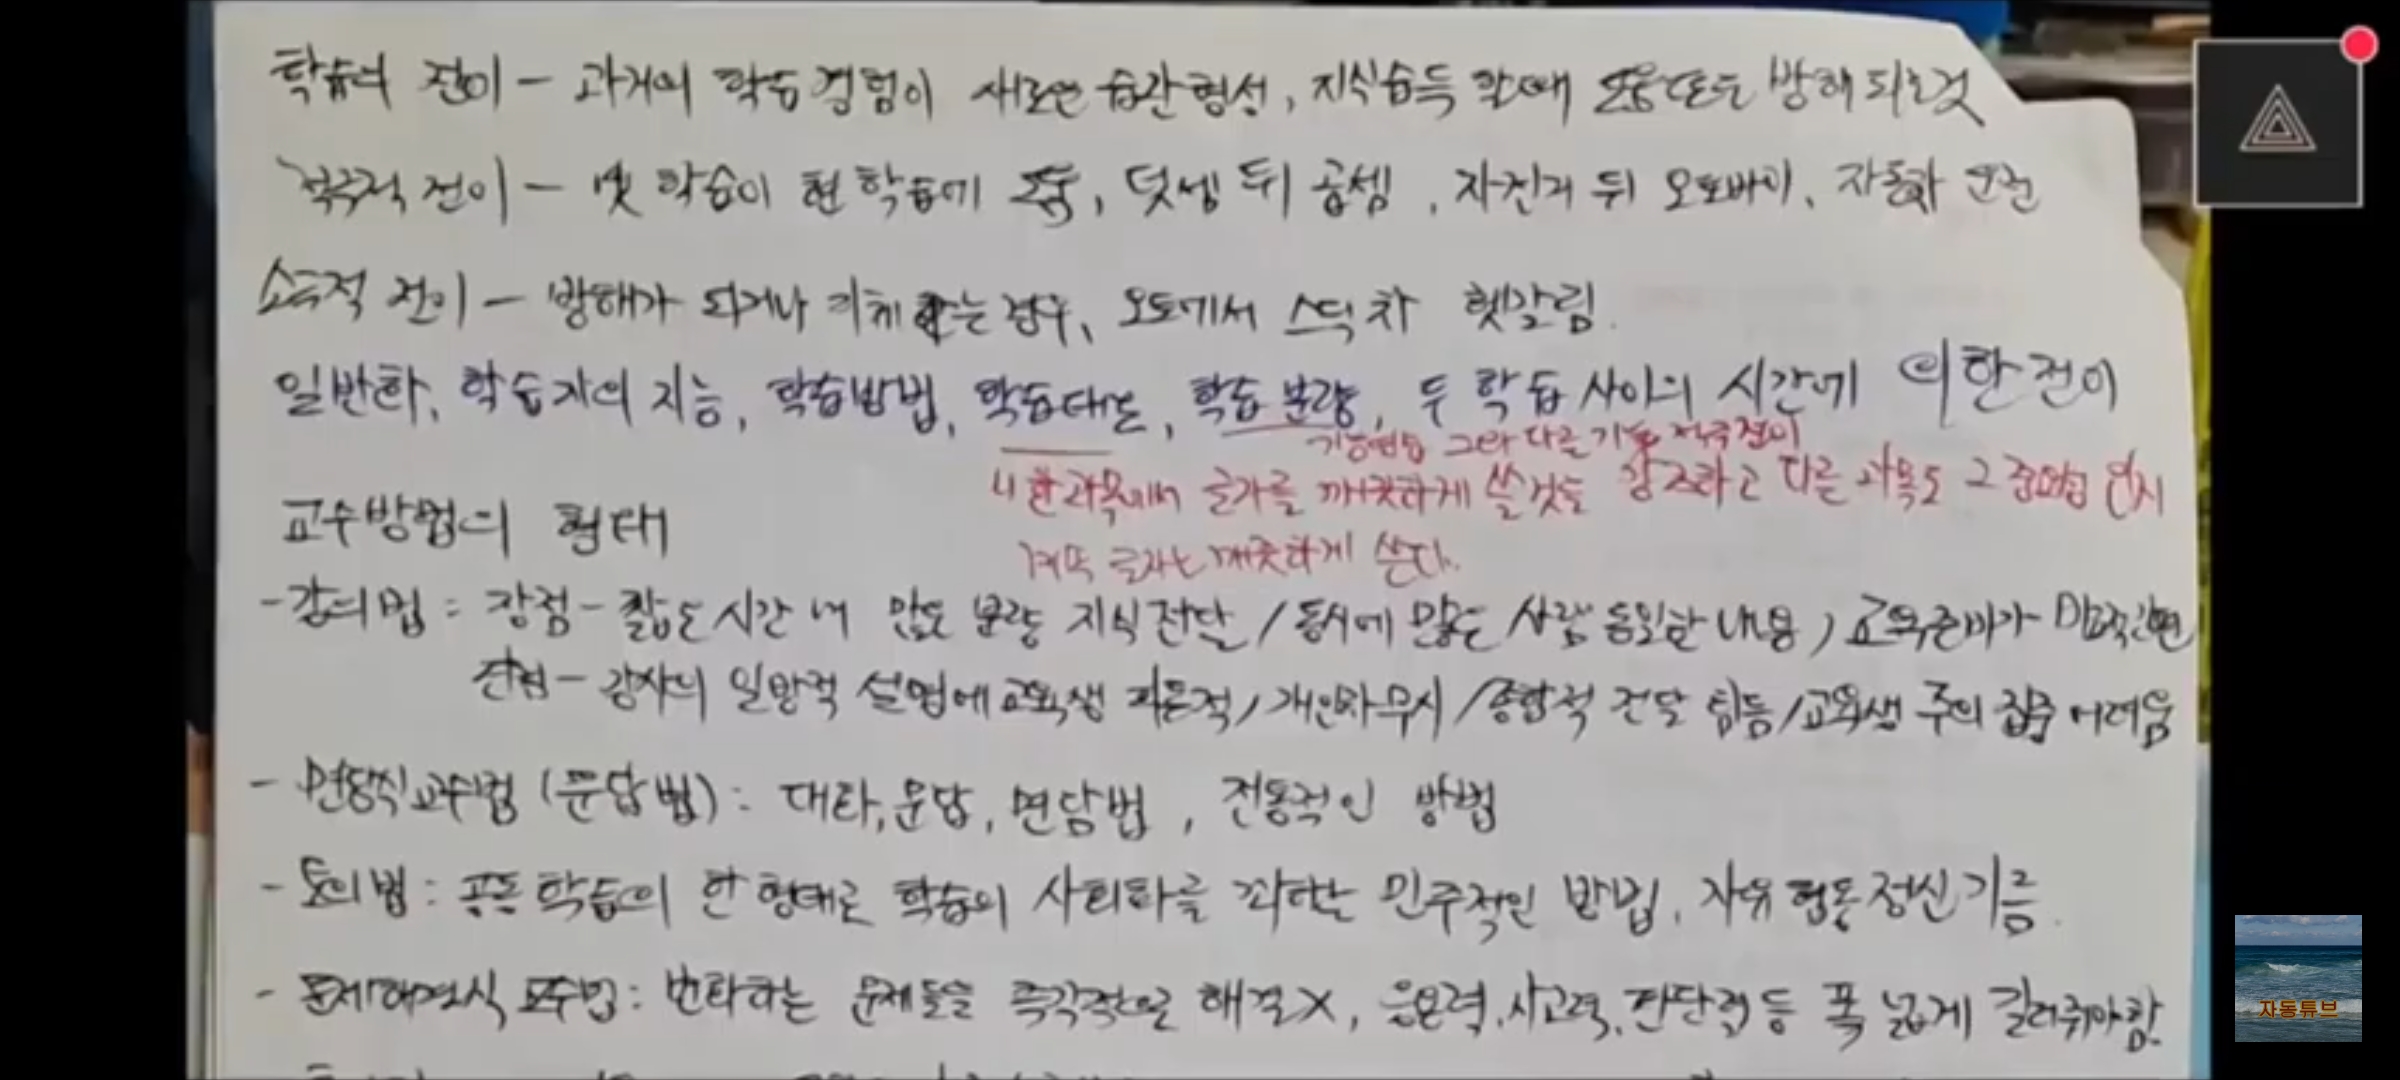 학습의 전이 - 과거의 학습경험이 새로운 습관형성, 지식습득 할때 도움 또는 방해 되는 것
적극적 전이 - 옛 학습이 현 학습에 도움, 덧셈 뒤 곱셈, 자전거 뒤 오토바이, 자동차 운전
소극적 전이 - 방해가 되거나 지체 되는 경우, 오토에서 스틱차 헷갈림.
일반화, 학습자의 지능, 학습방법, 학습태도, 학습 분량, 두 학습 사이의 시간에 의한 전이
기능연습 그와 다른 기능 적극전이
한과목에서 글자를 깨끗하게 쓸것을 강조하고 다른 과목도 그 중요성
글자는 깨끗하게 쓴다.
교수방법의 형태
- 강의법 : 장점 - 짧은 시간 내 많은 분량 지식전달 / 동시에 많은 사람 동일한 내용 / 교육준비가 간편
단점 - 강사의 일방적 설명에 교육생 피동적 / 개인차 무시 / 종합적 전달 힘듬 / 교육생 주의 집중 어려움
- 문답식교수법 (문답법) : 대화, 문답, 면담법, 전통적인 방법
- 토의법 : 공동 학습의 한 형태로 학습의 사회화를 꾀하는 민주적인 방법, 자유 협동정신 기름.
- 문제해결식 교수법 : 변화하는 문제들을 즉각적으로 해결X, 응용력, 사고력, 판단력 등 폭 넓게 길러줘야함.
자동튜브